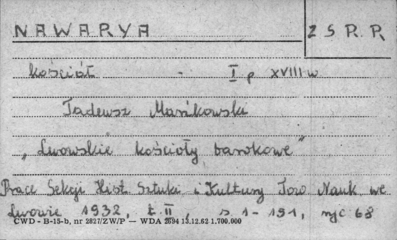 NAWARYA
Z S R. R
kościół - I p XVIII w.
Tadeusz Mańkowski
„Lwowskie kościoły barokowe"
Prace Sekcji Hist. Sztuki i Kultury Tow. Nauk. we
Lwowie 1932, t. II, s 1 - 191, ryc 68
CWD - B-15-b, nr 2827/ZW/P — WDA 2694 13.12.62 1.700.000